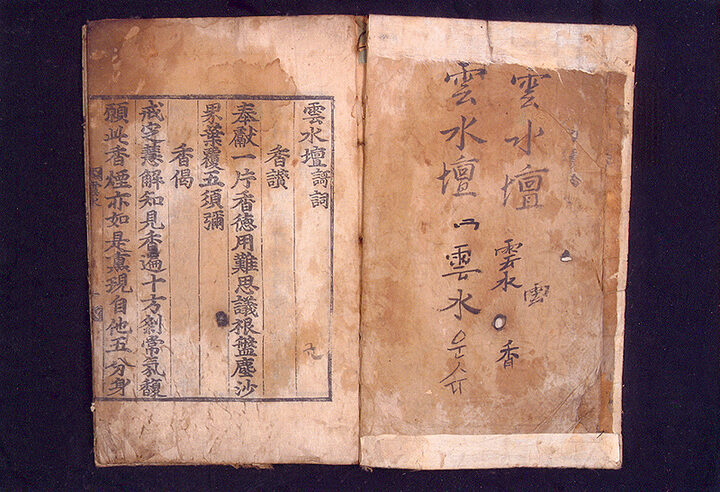 雲水壇
雲
雲水
香
雲水壇
雲水
운슈
雲水壇謌詞
香讃
奉獻一片香德用難思議根盤塵沙
界葉覆五須彌
香偈
戒定慧解知見香遍十方剎常氛馥
願此香煙亦如是熏現自他五分身